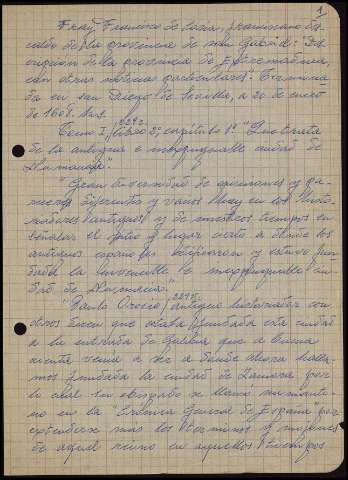 1
Fray Francisco de Coria, franciscano des-
calzo de la provincia de San Gabriel: "Des-
cripción de la provincia de Extremadura,
con otras noticias particulares. Termina-
da en San Diego de Sevilla, a 20 de enero
de 1608. Mss.
Tomo I, libro 2º, capítulo 1º "Que trata
de la antigua e inexpugnable ciudad de
Numancia."
"Gran diversidad de opiniones y pa-
receres diferentes y varios hay en los histo-
riadores antiguos y de nuestros tiempos en
señalar el sitio y lugar cierto a donde los
antiguos españoles edificaron y estuvo fun-
dada la invencible e inexpugnable ciu-
dad de Numancia."
"Paulo Orosio, antiguo historiador con
otros dicen que estaba fundada esta ciudad
a la entrada de Galicia que a buena
cuenta venía a ser a donde ahora halla-
mos fundada la ciudad de Zamora por
lo cual su obispado se llamó numanti-
no en la "Crónica General de España por
extenderse más los términos y mojones
de aquel reino en aquellos tiempos